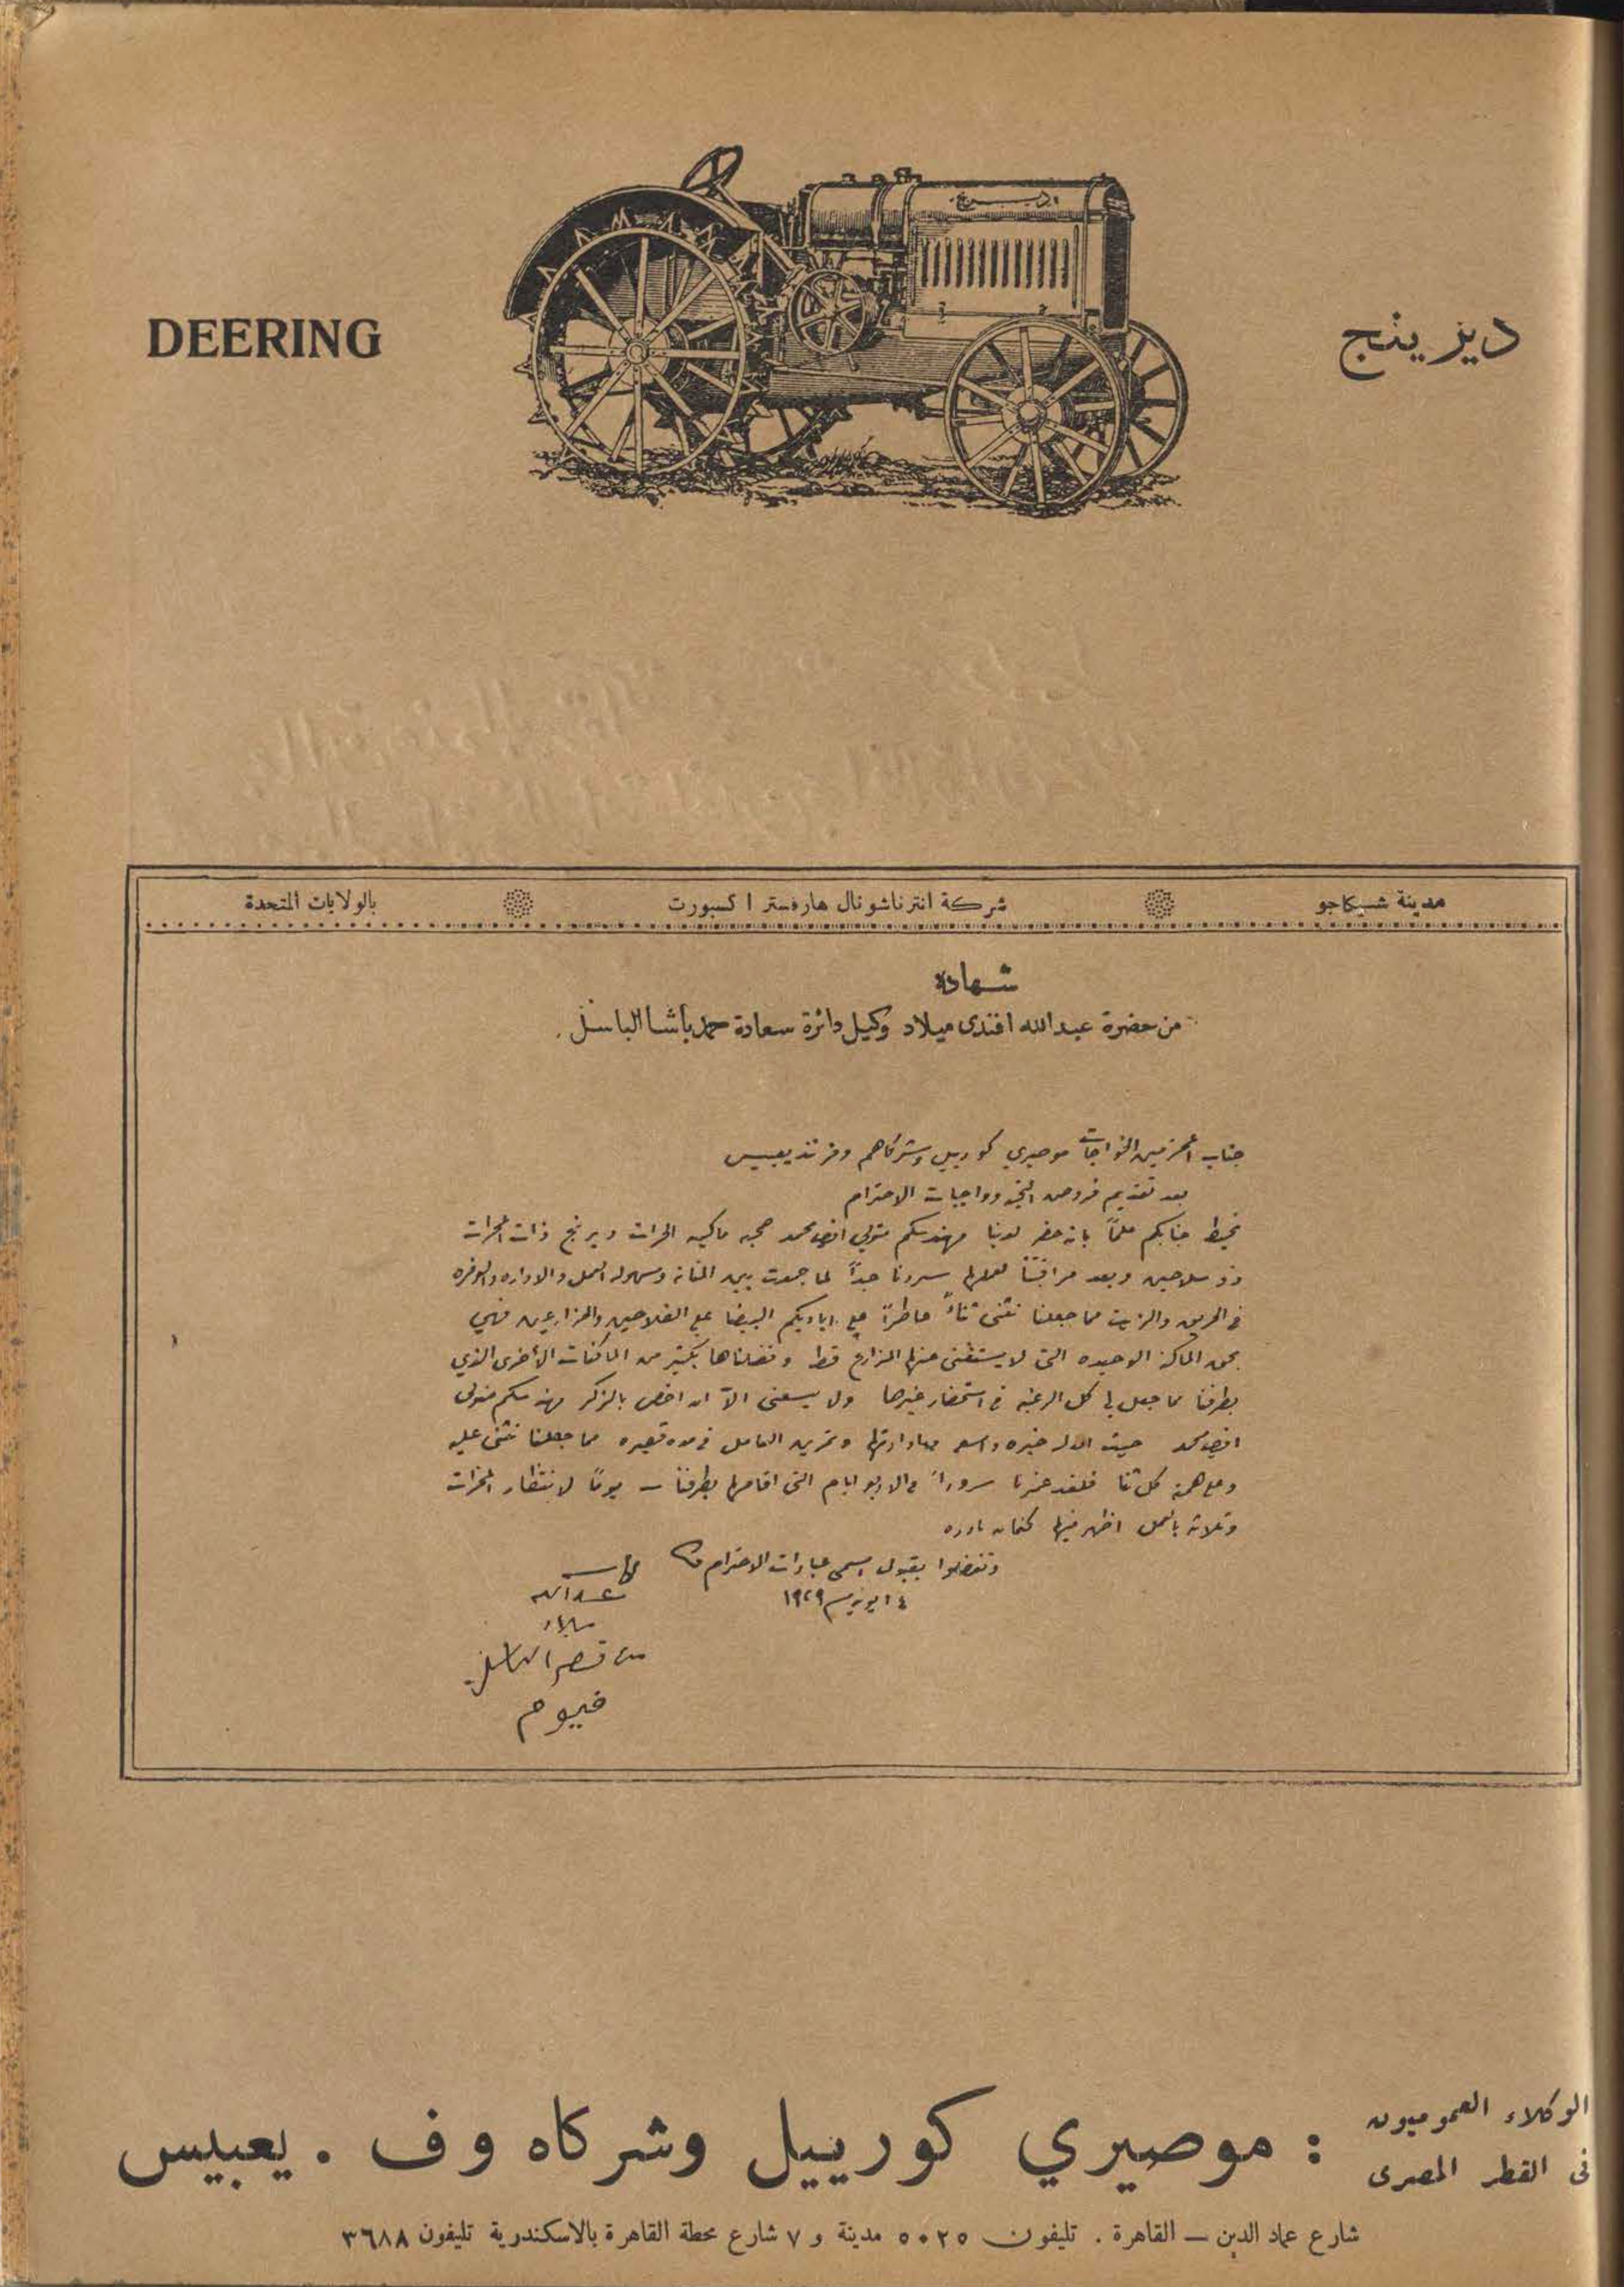 DEERING
ديرينج
ديرينج
مدينة شيكاجو
شركة انترناشونال هارفستر اكسبورت
بالولايات المتحدة
شهادة
من حضرة عبد الله افندى ميلاد وكيل دائرة سعادة حمد باشا الباسل .
جناب المحترمين الخواجات موصيري كورييل وشركاهم وفرنند يعبيس
بعد تقديم فروض التحية وواجبات الاحترام
نحيط جنابكم علمًا بانه حضر لدينا مهندسكم متولي افندي محمد صحبة ماكينه الحراث ديرنج ذات المحراث
ذو سلاحين وبعد مراقبتنا لعملها سررنا جدًا لما جمعت بين المتانه وسهوله العمل والاداره والوفره
فى الحريق والزيت مما جعلنا نثنى ثناءً عاطرًا على اياديكم البيضا على الفلاحين والمزارعين فهي
بحق الماكنة الوحيده التى لا يستغنى عنها المزارع قط وفضلناها بكثير من الماكنات الأخرى الذي
بطرفنا مما جعل لي كل الرغبه فى استحضار غيرها ولا يسعنى الا ان اخص بالذكر مهندسكم متولى
افندي محمد حيث له خبره واسعه وتمرين العامل فى مده قصيره مما جعلنا نثنى عليه
وعلى همته كل ثنا فلقد سرورًا فى الاربع ايام التى اقامها بطرفنا – يومًا لانتظار المحراث
وثلاثه بالعمل اظهر فيها نادره
وتفضلوا بقبول اسمى عبارات الاحترام
١٤ يونيه سنة ١٩٢٩
عبد الله
ميلاد
من قصر الباسل
فيوم
الوكلاء العموميون
فى القطر المصرى
: موصيري كورييل وشركاه وف . يعبيس
شارع عماد الدين — القاهرة . تليفون ٥٠٢٥ مدينة و ٧ شارع محطة القاهرة بالاسكندرية تليفون ٣٦٨٨